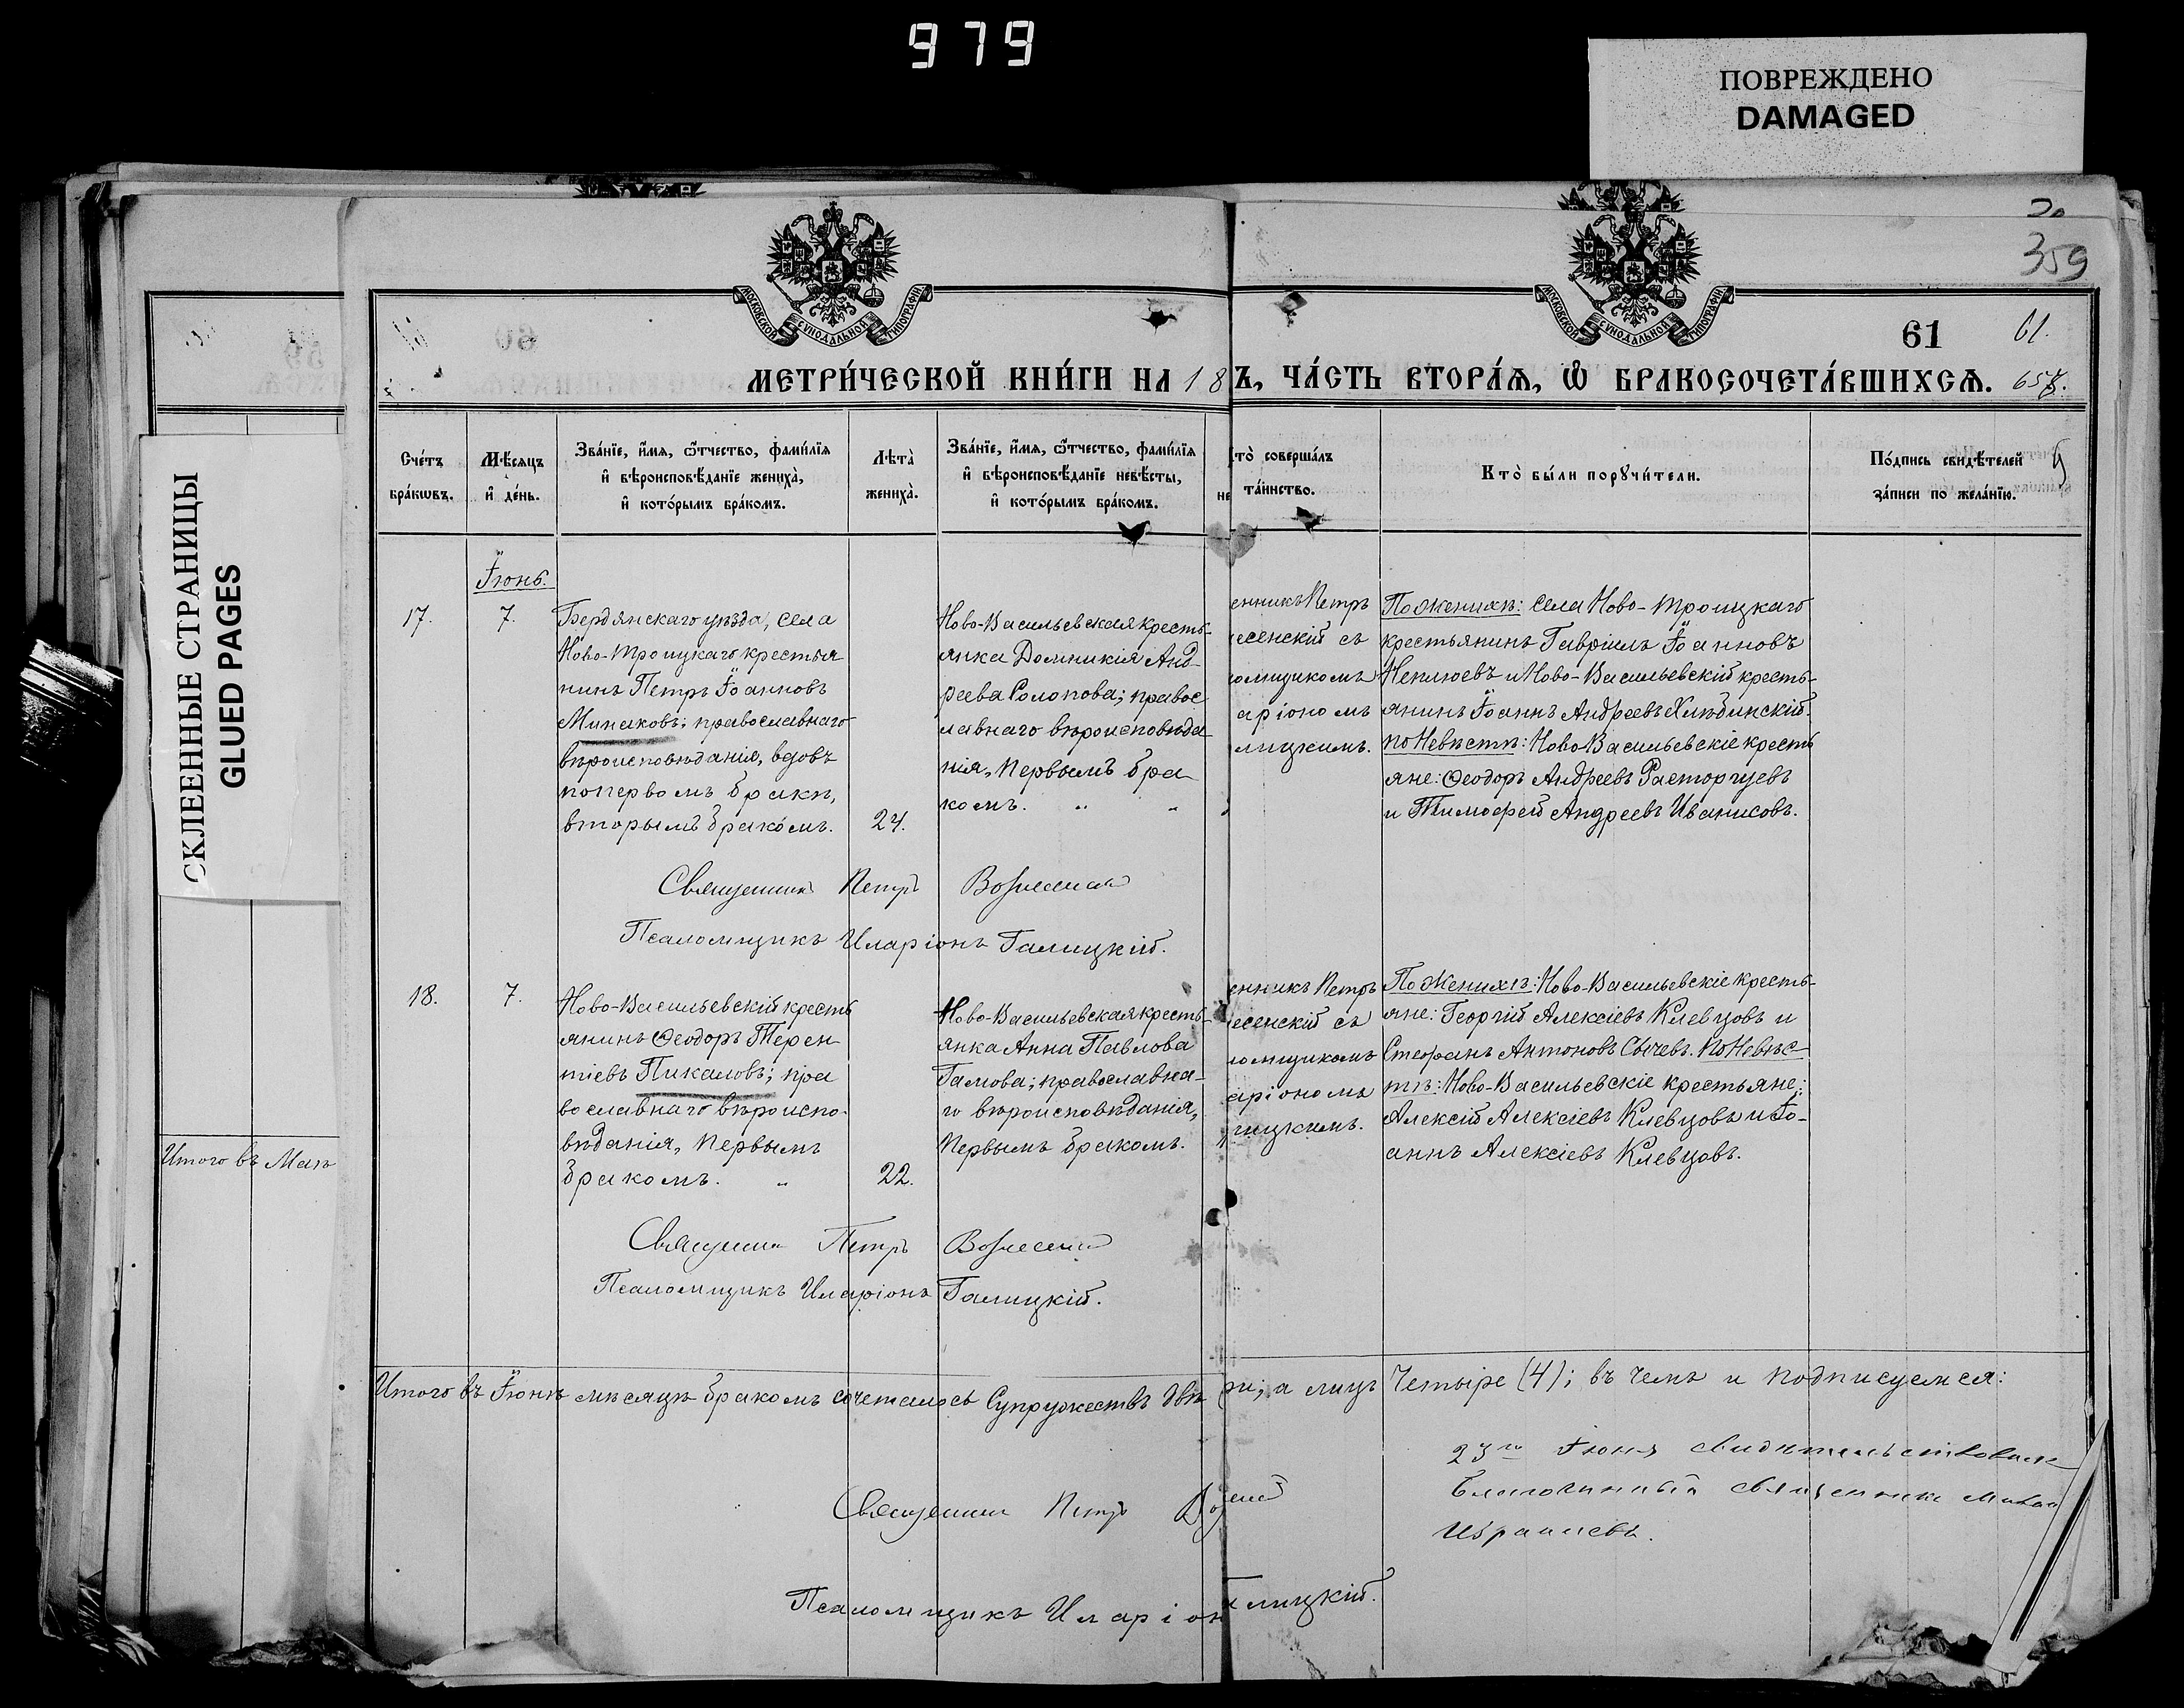 979
ПОВРЕЖДЕНО
DAMAGED
СКЛЕЕННЫЕ СТРАНИЦЫ
GLUED PAGES
Итого въ Маѣ
359
МОСКОВСКОЙ СѴНОДАЛЬНОЙ ТИПОГРАФІИ
МОСКОВСКОЙ СѴНОДАЛЬНОЙ ТИПОГРАФІИ
61
61.
МЕТРИ́ЧЕСКОЙ КНИ́ГИ НА 18
Ъ, ЧА́СТЬ ВТОРА́Ѧ, Ѽ БРАКОСОЧЕТА́ВШИХСѦ.
Сче́тъ бра́кѡвъ.
Мѣ́сяцъ и҆ де́нь.
Зва́нїе, и҆́мя, ѻ҆́тчество, фами́лїя
и҆ вѣроисповѣ́данїе жениха̀,
и҆ кото́рымъ бра́комъ.
Лѣта̀ жениха̀.
Зва́нїе, и҆́мя, ѻ҆́тчество, фами́лїя
и҆ вѣроисповѣ́данїе невѣ́сты,
и҆ кото́рымъ бра́комъ.
не
то̀ соверша́лъ
та́инство.
Кто̀ бы́ли порꙋчи́тели.
По́дпись свидѣ́телей
за́писи по жела́нїю.
Іюнь.
17.
7.
Бердянскаго уѣзда, села
Ново-Троицкаго крестья
нинъ Петръ Іоанновъ
Минаковъ; православнаго
вѣроисповѣданія, вдовъ
по первомъ бракѣ,
вторымъ бракомъ.
24.
Ново-Васильевская кресть-
янка Домникія Анд-
реева Солопова; правос
лавнаго вѣроисповѣда
нія, первымъ бра
комъ.
енникъ Петръ
есенскій съ
омщикомъ
аріономъ
лицкимъ.
По женихѣ: села Ново-Троицкаго
крестьянинъ Гавріилъ Іоанновъ
Неплюевъ и Ново-Васильевскій кресть-
янинъ Іоаннъ Андреевъ Хлѣбинскій.
по Невѣстѣ: Ново Васильевскіе кресть
яне: Ѳеодоръ Андреевъ Расторгуевъ
и Тимофей Андреевъ Иванисовъ.
Священникъ Петръ Вознесенскій
Псаломщикъ Иларіонъ Галицкій.
18.
7.
Ново-Васильевскій кресть
янинъ Ѳеодоръ Терен
тіевъ Пикаловъ; пра
вославнаго вѣроиспо-
вѣданія, первымъ
бракомъ.
22.
Ново-Васильевская кресть-
янка Анна Павлова
Гамова; православна-
го вѣроисповѣданія,
первымъ бракомъ.
енникъ Петръ
есенскій съ
омщикомъ
аріономъ
лицкимъ.
По Женихѣ: Ново-Васильевскіе кресть-
яне: Георгій Алексіевъ Клевцовъ и
Стефанъ Антоновъ Сычевъ. По Невѣс-
тѣ: Ново-Васильевскіе крестьяне:
Алексій Алексіевъ Клевцовъ и Іо-
аннъ Алексіевъ Клевцовъ.
Священникъ Петръ Вознесенскій
Псаломщикъ Иларіонъ Галицкій.
Итого въ Іюнѣ мѣсяцѣ бракомъ сочеталось Супружествъ двѣ
а лицъ Четыре (4); въ чемъ и подписуемся:
23го Іюня свидѣтельствовалъ
Благочинный священникъ
Священникъ Петръ
Псаломщикъ Иларіон
лицкій.